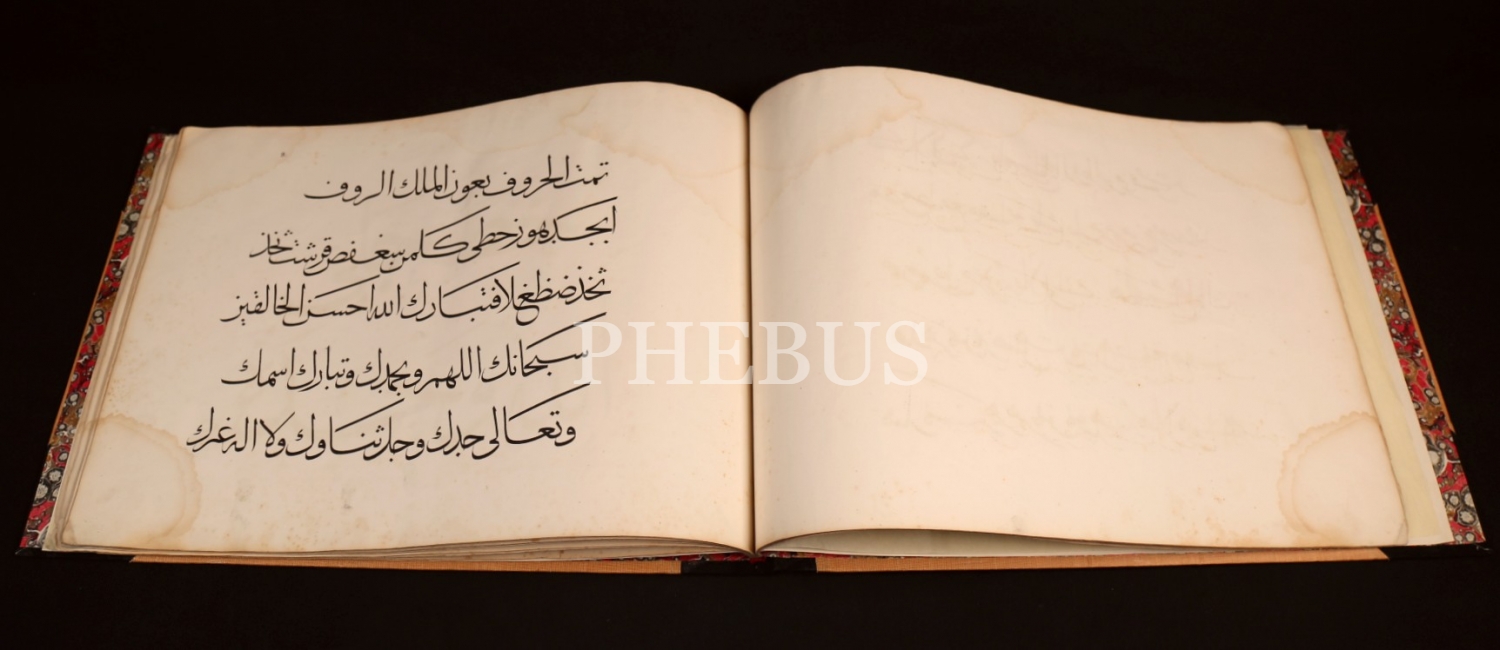 تمت الحروف بعون الملك الروف
ابجد هوز حطى كلمن سعفص قرشت ثخذ
ثخذ ضظغلا فتبارك الله احسن الخالقين
سبحانك اللهم وبحمدك وتبارك اسمك
وتعالى جدك وجل ثناوك ولا اله غيرك
PHEBUS